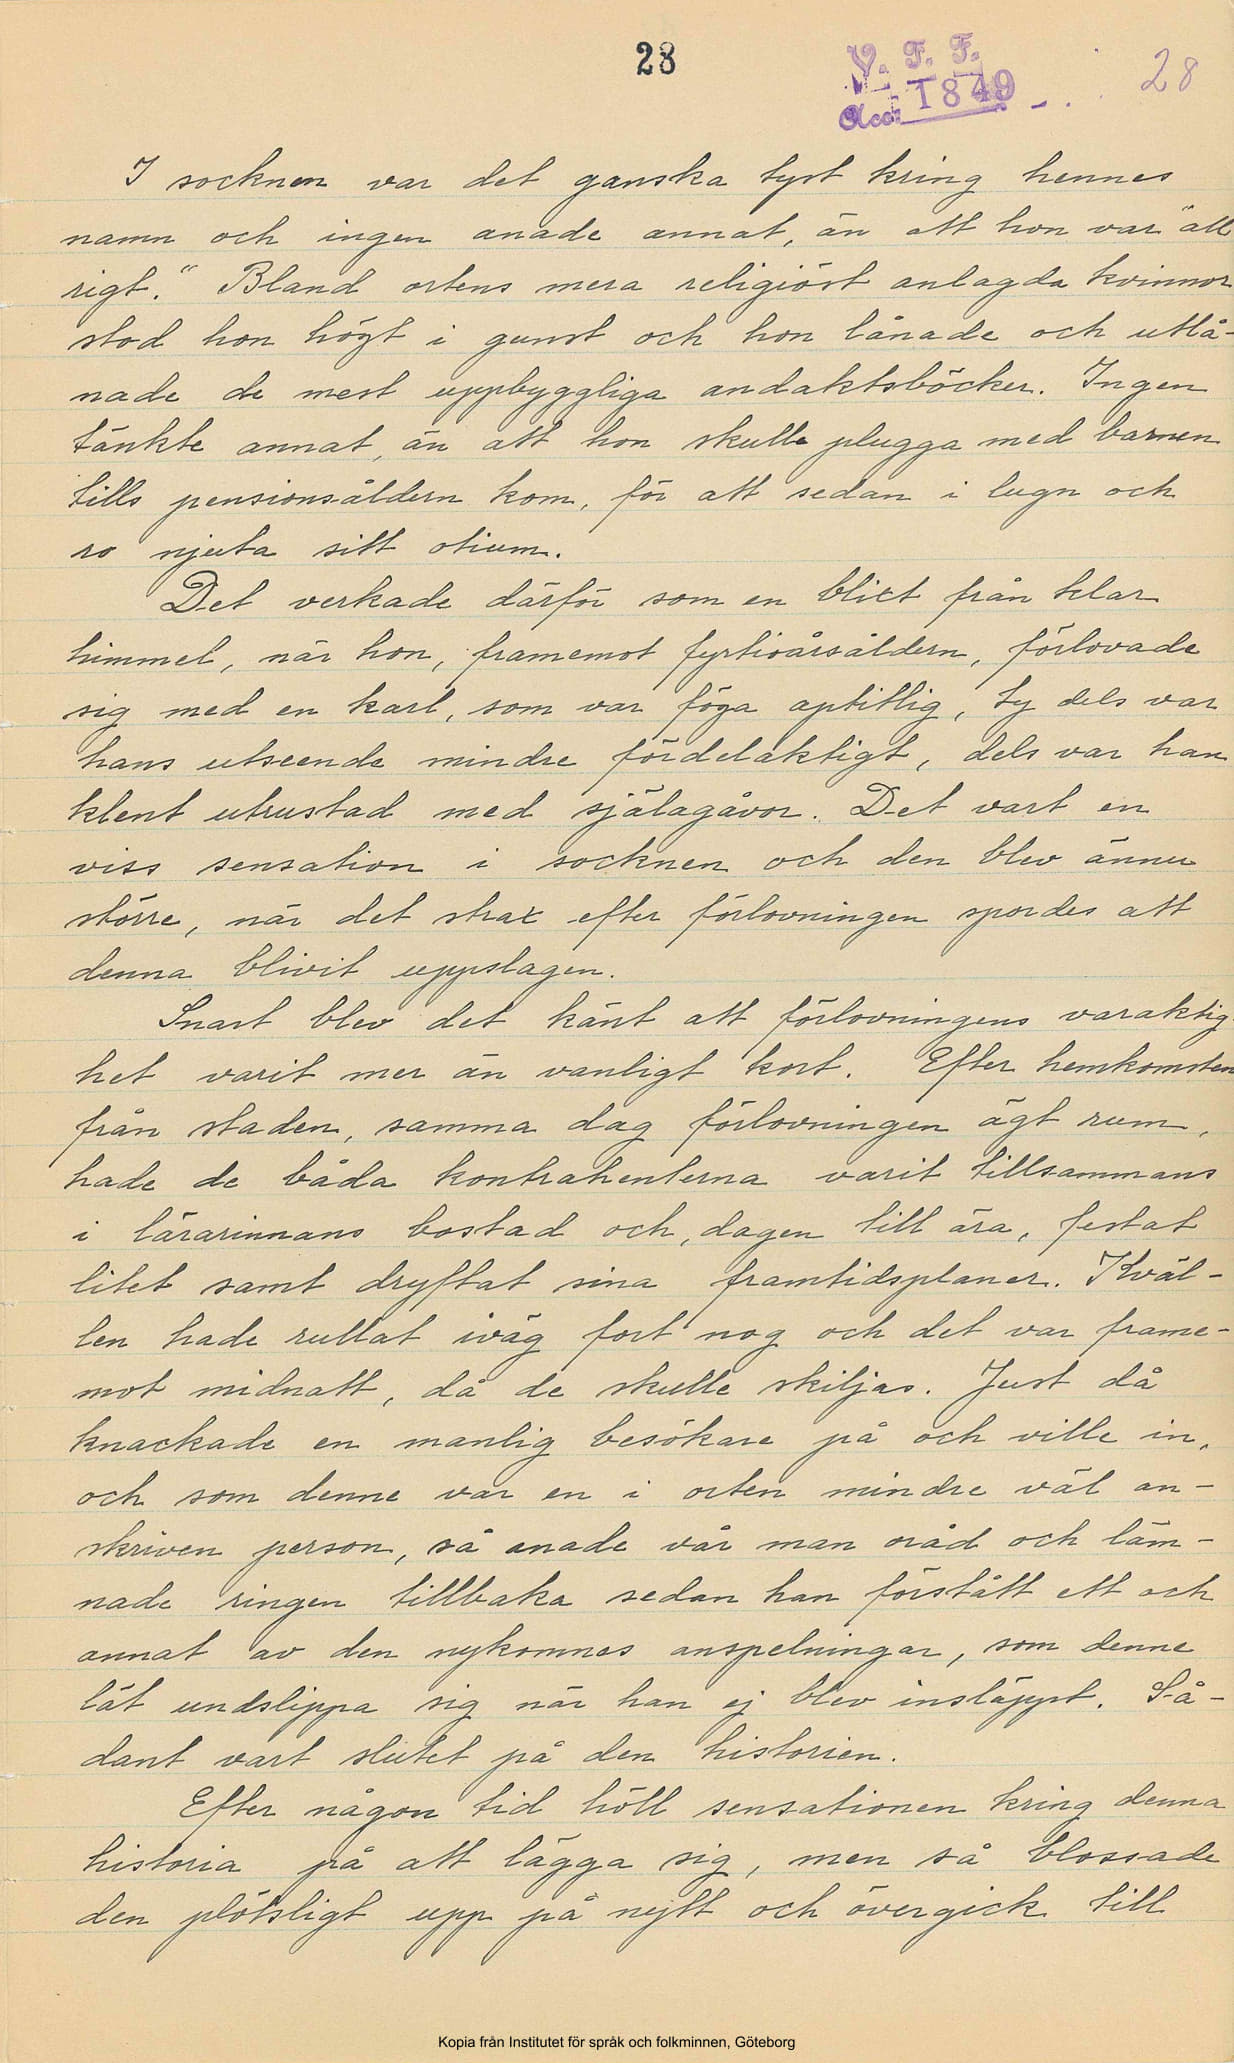 28
V. F. F.
Acc: 1849
28
I socknen var det ganska tyst kring hennes
namn och ingen anade annat, än att hon var "all
rigt." Bland ortens mera religiöst anlagda kvinnor
stod hon högt i gunst och hon lånade och utlå-
nade de mest uppbyggliga andaktsböcker. Ingen
tänkte annat, än att hon skulle plugga med barnen
tills pensionsåldern kom, för att sedan i lugn och
ro njuta sitt otium.
Det verkade därför som en blixt från klar
himmel, när hon, framemot fyrtioårsåldern, förlovade
sig med en karl, som var föga aptitlig, ty dels var
hans utseende mindre fördelaktigt, dels var han
klent utrustad med själagåvor. Det vart en
viss sensation i socknen och den blev ännu
större, när det strax efter förlovningen spordes att
denna blivit uppslagen.
Snart blev det känt att förlovningens varaktig-
het varit mer än vanligt kort. Efter hemkomsten
från staden, samma dag förlovningen ägt rum,
hade de båda kontrahenterna varit tillsammans
i lärarinnans bostad och, dagen till ära, festat
litet samt dryftat sina framtidsplaner. Kväl-
len hade rullat iväg fort nog och det var frame-
mot midnatt, då de skulle skiljas. Just då
knackade en manlig besökare på och ville in,
och som denne var en i orten mindre väl an-
skriven person, så anade vår man oråd och läm-
nade ringen tillbaka sedan han förstått ett och
annat av den nykomnes anspelningar, som denne
lät undslippa sig när han ej blev insläppt. Så-
dant vart slutet på den historien.
Efter någon tid höll sensationen kring denna
historia på att lägga sig, men så blossade
den plötsligt upp på nytt och övergick till
Kopia från Institutet för språk och folkminnen, Göteborg